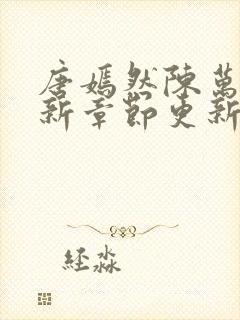 唐嫣然陳萬
新章節更新
經淼